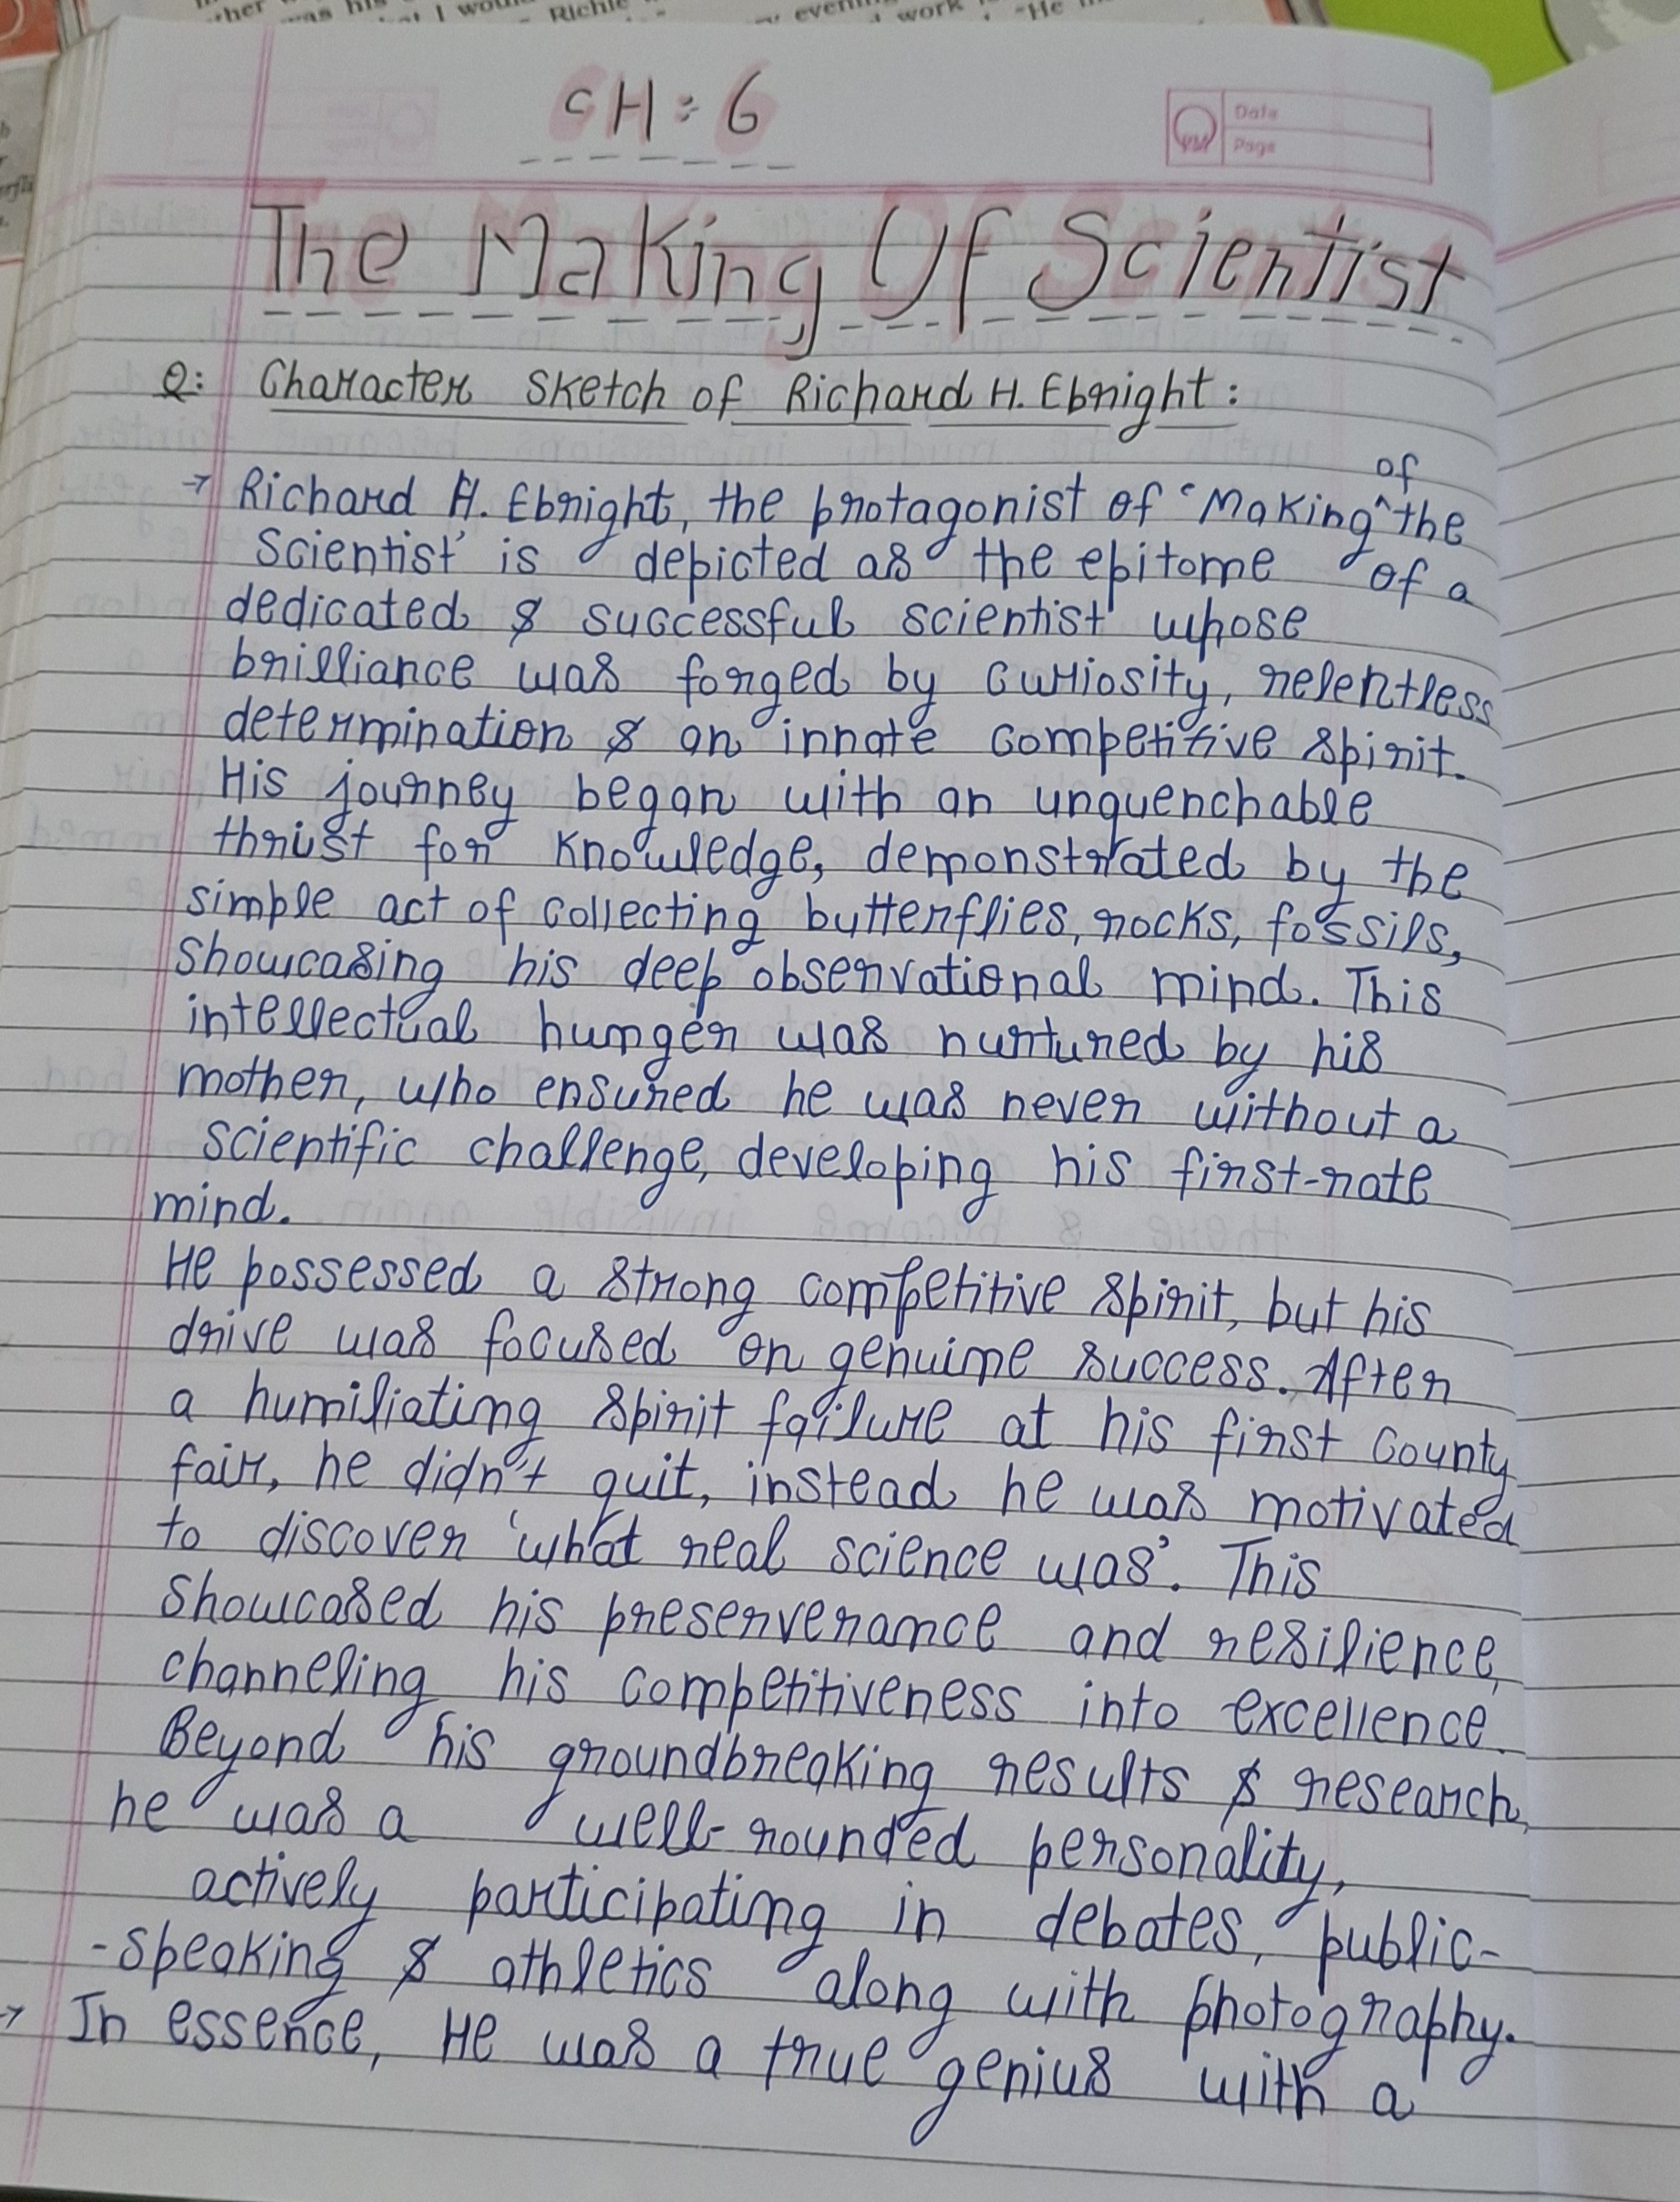 CH: 6
Date
Page
The Making Of Scientist
Q: Character Sketch of Richard H. Ebright:
of
→ Richard H. Ebright, the protagonist of 'Making ^ the
Scientist' is depicted as the epitome of a
dedicated & successful scientist whose
brilliance was forged by curiosity, relentless
determination & an innate competitive spirit.
His journey began with an unquenchable
thrist for knowledge, demonstrated by the
simple act of collecting butterflies, rocks, fossils,
showcasing his deep observational mind. This
intellectual hunger was nurtured by his
mother, who ensured he was never without a
scientific challenge, developing his first-rate
mind.
He possessed a strong competitive spirit, but his
drive was focused on genuine success. After
a humiliating spirit failure at his first county
fair, he didn't quit, instead he was motivated
to discover 'what real science was'. This
showcased his preserverance and resilience,
channeling his competitiveness into excellence.
Beyond his groundbreaking results & research,
he was a well-rounded personality,
actively participating in debates, public-
-speaking & athletics along with photography.
→ In essence, He was a true genius with a